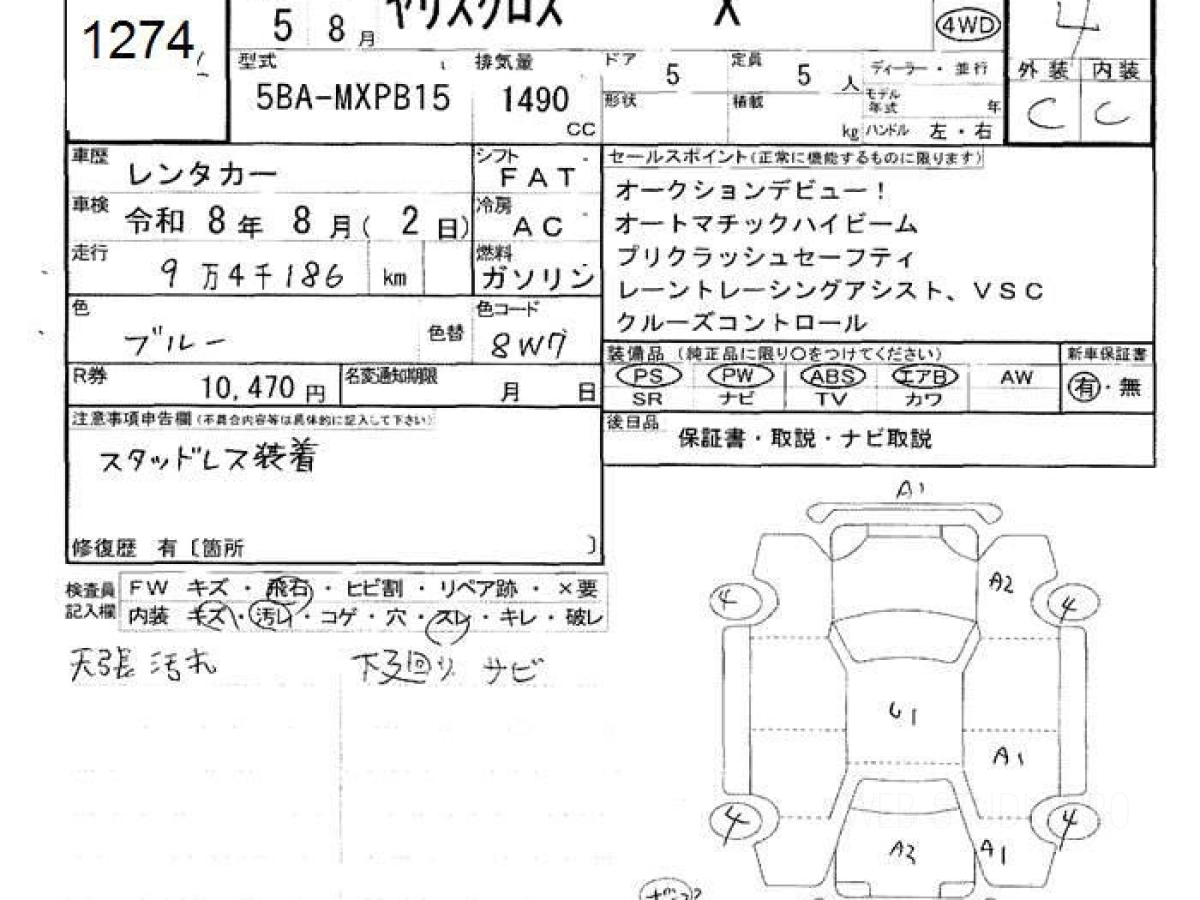 1274
5 8月 ヤリスクロス X 4WD 4
型式 排気量 ドア 5 定員 5 人 ディーラー・並行 外装 内装
5BA-MXPB15 1490 CC 形状 積載 kg モデル年式 年 C C
ハンドル 左・右
車歴 レンタカー シフト FAT
車検 令和 8年 8月( 2日) 冷房 AC
走行 9万4千186 km 燃料 ガソリン
色 ブルー 色替 色コード 8W7
R券 10,470円 名変通知期限 月 日
注意事項申告欄(不具合内容等は具体的に記入して下さい)
スタッドレス装着
修復歴 有〔箇所 〕
セールスポイント(正常に機能するものに限ります)
オークションデビュー!
オートマチックハイビーム
プリクラッシュセーフティ
レーントレーシングアシスト、VSC
クルーズコントロール
装備品 (純正品に限り○をつけてください) 新車保証書
PS PW ABS エアB AW 有・無
SR ナビ TV カワ
後日品 保証書・取説・ナビ取説
検査員記入欄
FW キズ・飛石・ヒビ割・リペア跡・×要
内装 キズ・汚レ・コゲ・穴・スレ・キレ・破レ
天張汚れ 下廻り サビ
A1
A2
4 4
U1
A1
4 4
A2 A1